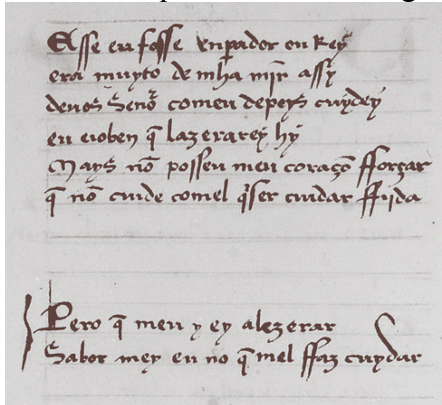 Esse eu fosse enpador ou Rey
era muyto de mha mer̃ assy
deuos Senõ comeu depoys cuydey
eu euoben q̃ lazerarey hy
Mays nõ posseu meu coraçõ fforçar
q̃ nõ cuide comel q̃ser cuidar ffijda
Pero q̃ meu y ey alezerar
Sabor mey eu no q̃ mel ffaz cuydar